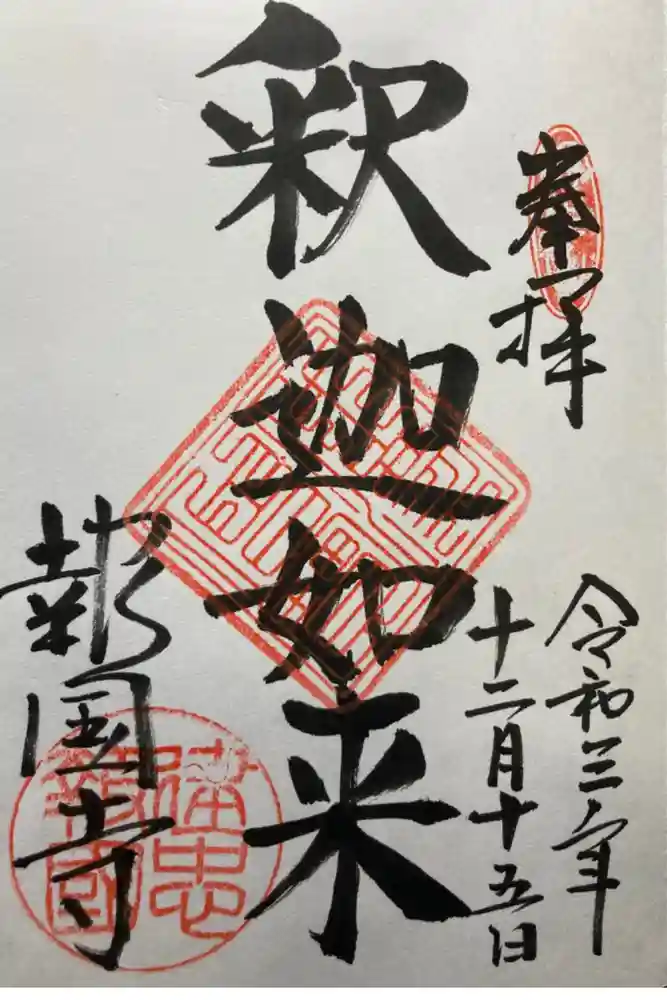 奉拝
令和三年
十二月十五日
釈迦如来
報国寺
盡忠
報國